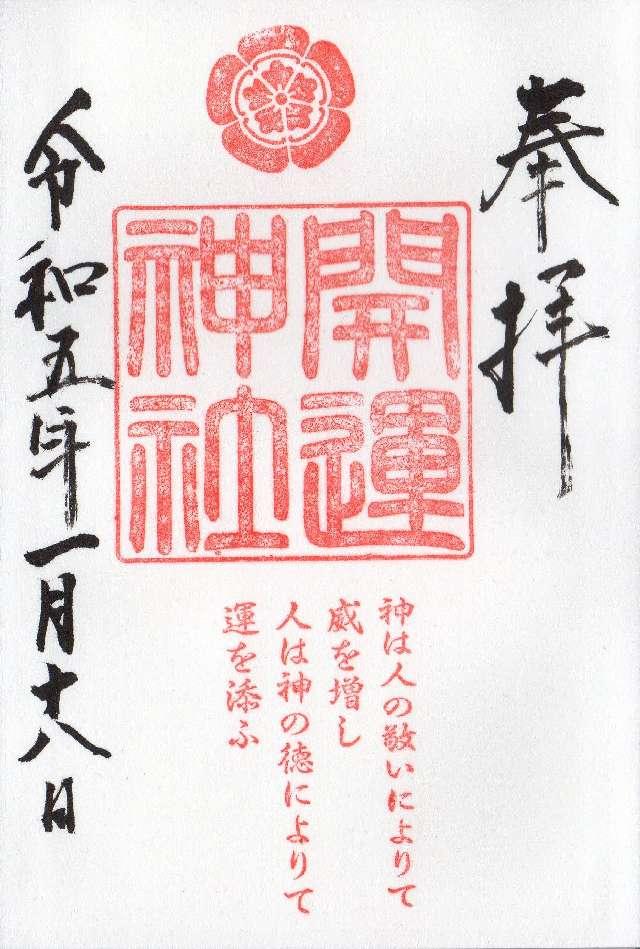 奉拝
開運
神社
神は人の敬いによりて
威を増し
人は神の徳によりて
運を添ふ
令和五年一月十八日